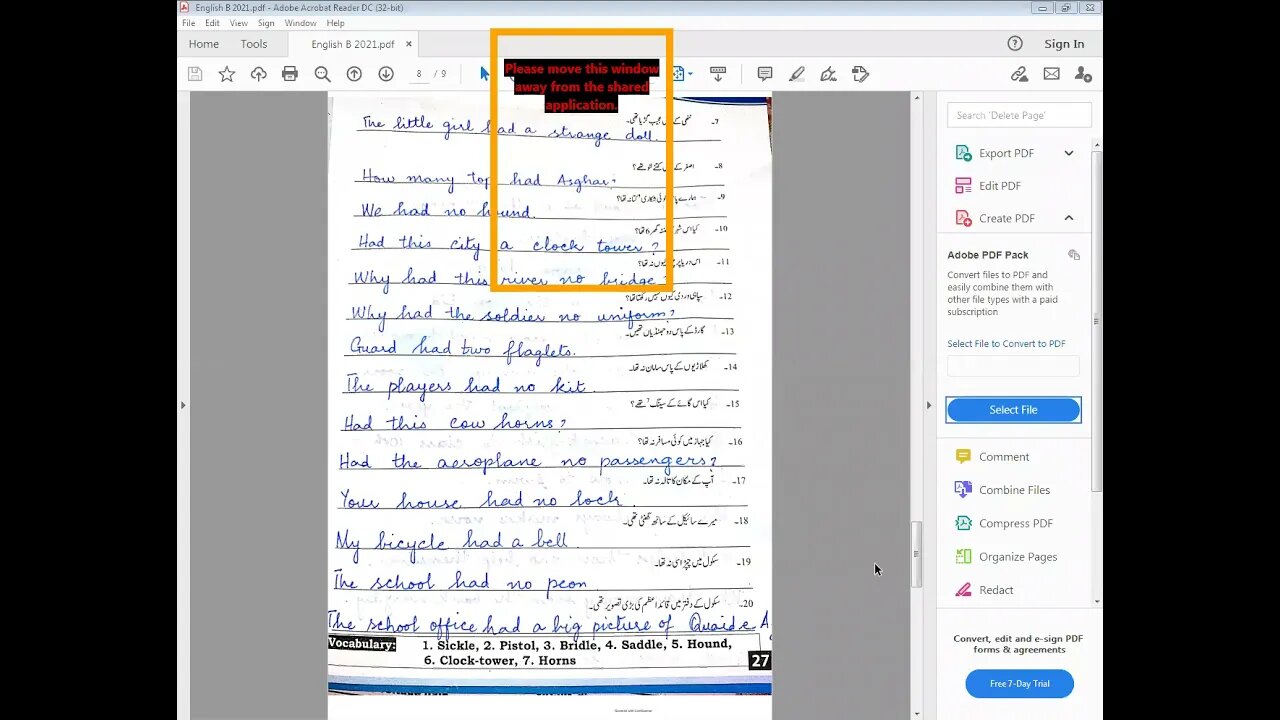 English B 2021.pdf - Adobe Acrobat Reader DC (32-bit)
File Edit View Sign Window Help
Home Tools English B 2021.pdf × Sign In
8 / 9
Please move this window
away from the shared
application.
Search 'Delete Page'
Export PDF
Edit PDF
Create PDF
Adobe PDF Pack
Convert files to PDF and
easily combine them with
other file types with a paid
subscription
Select File to Convert to PDF
Select File
Comment
Combine Files
Compress PDF
Organize Pages
Redact
Convert, edit and e-sign PDF
forms & agreements
Free 7-Day Trial
7-
The little girl had a strange doll.
8-
How many top had Asghar?
9-
We had no hound.
10-
Had this city a clock tower?
11-
Why had this river no bridge?
12- سپاہی وردی کیوں نہیں رکھتا تھا؟
Why had the soldier no uniform?
13- گارڈ کے پاس دو جھنڈیاں تھیں۔
Guard had two flaglets.
14- کھلاڑیوں کے پاس سامان نہ تھا۔
The players had no kit.
15- کیا اس گائے کے سینگ تھے؟
Had this cow horns?
16- کیا جہاز میں کوئی مسافر نہ تھا؟
Had the aeroplane no passengers?
17- آپ کے مکان کا تالہ نہ تھا۔
Your house had no lock.
18- میرے سائیکل کے ساتھ گھنٹی تھی۔
My bicycle had a bell.
19- سکول میں چپڑاسی نہ تھا۔
The school had no peon
20- سکول کے دفتر میں قائداعظم کی بڑی تصویر تھی۔
The school office had a big picture of Quaid e A
Vocabulary: 1. Sickle, 2. Pistol, 3. Bridle, 4. Saddle, 5. Hound,
6. Clock-tower, 7. Horns
27